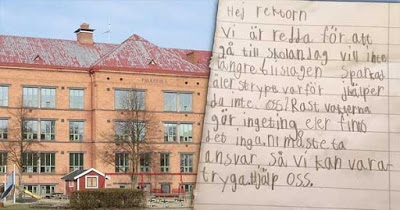 Hej rektorn
Vi är redda för att
gå till skolan. Jag vill inte
längre bli slagen sparkad
äler strypt varför hjälper
du inte. oss? Rast vakterna
gör ingeting eler fins
det inga. Ni måste ta
ansvar, så vi kan vara
tryga. Hjälp oss.